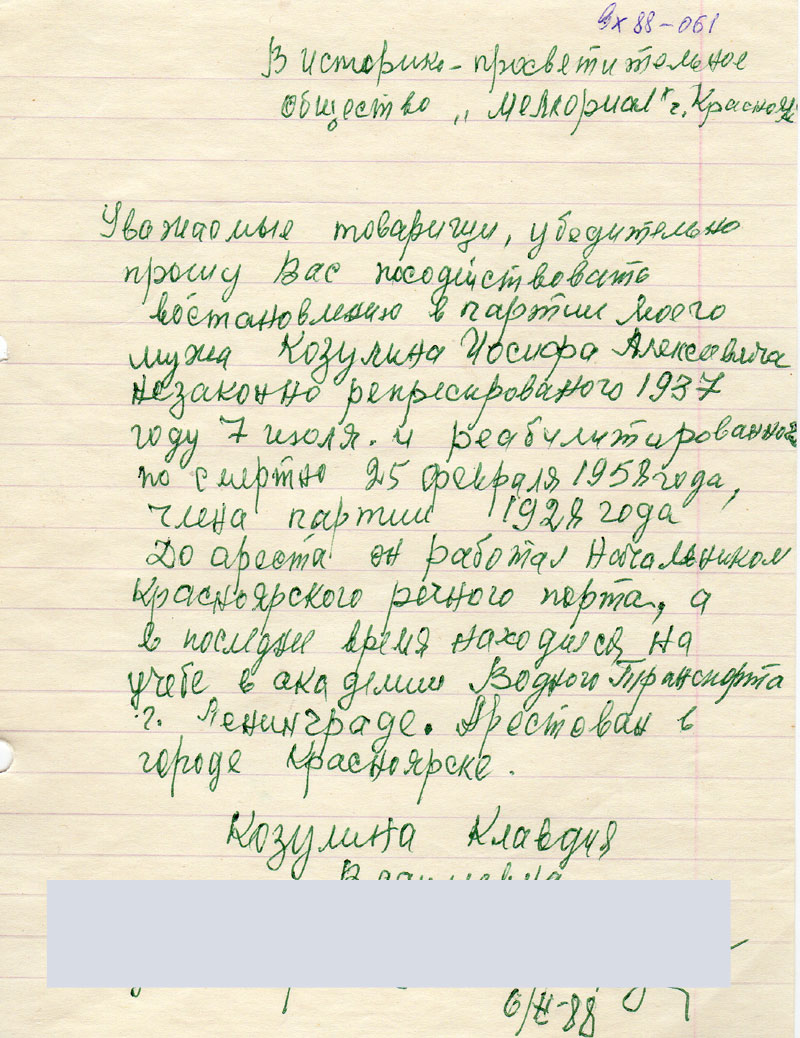 Вх 88-061
В историко-просветительное
общество „Мемориал" г. Красноя
Уважаемые товарищи, убедительно
прошу Вас посодйствовать
востановлению в партии моего
мужа Козулина Иосифа Алексеевича
незаконно репресированого 1937
году 7 июля. и реабилитированного
по смертно 25 февраля 1958 года,
члена партии 1928 года
До ареста он работал начальником
Красноярского речного порта, а
в последнее время находился на
учебе в академии Водного Транспорта
г. Ленинграде. Арестован в
городе Красноярске.
Козулина Клавдия